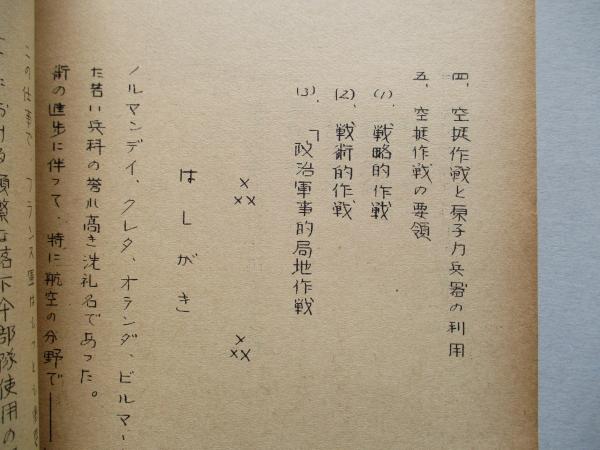 四、空挺作戦と原子力兵器の利用
五、空挺作戦の要領
(1)、戦略的作戦
(2)、戦術的作戦
(3)、「政治軍事的局地作戦
×
××
×
××
はしがき
ノルマンデイ、クレタ、オランダ、ビルマ
た若い兵科の誉れ高き洗礼名であつた。
術の進歩に伴つて、特に航空の分野で——
この仕事で、フランス軍は
における頻繁な落下傘部隊使用の